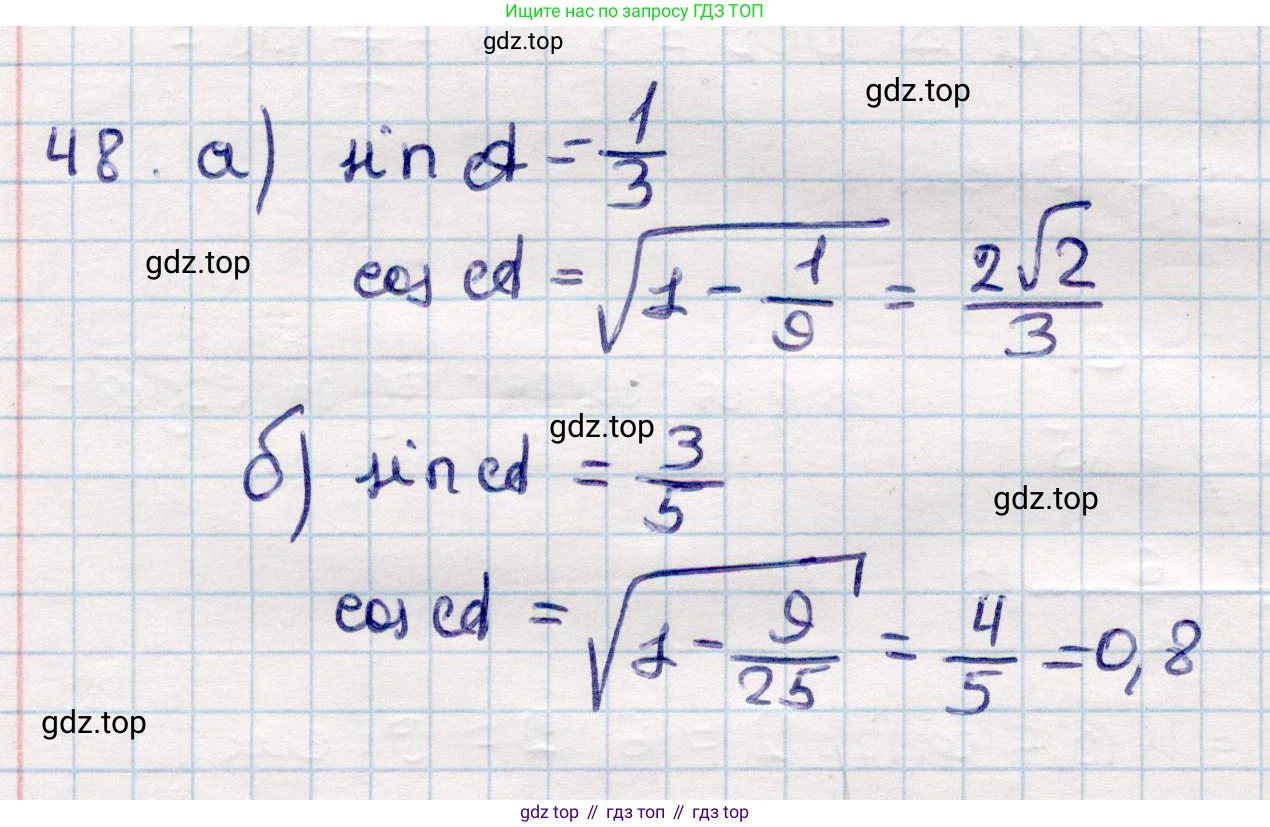 Ищите нас по запросу ГДЗ ТОП
gdz.top
gdz.top
48. а) sin α = 1/3
gdz.top
cos α = √(1 - 1/9) = 2√2/3
gdz.top
б) sin α = 3/5
gdz.top
cos α = √(1 - 9/25) = 4/5 = 0,8
gdz.top
gdz top // гдз топ // гдз top